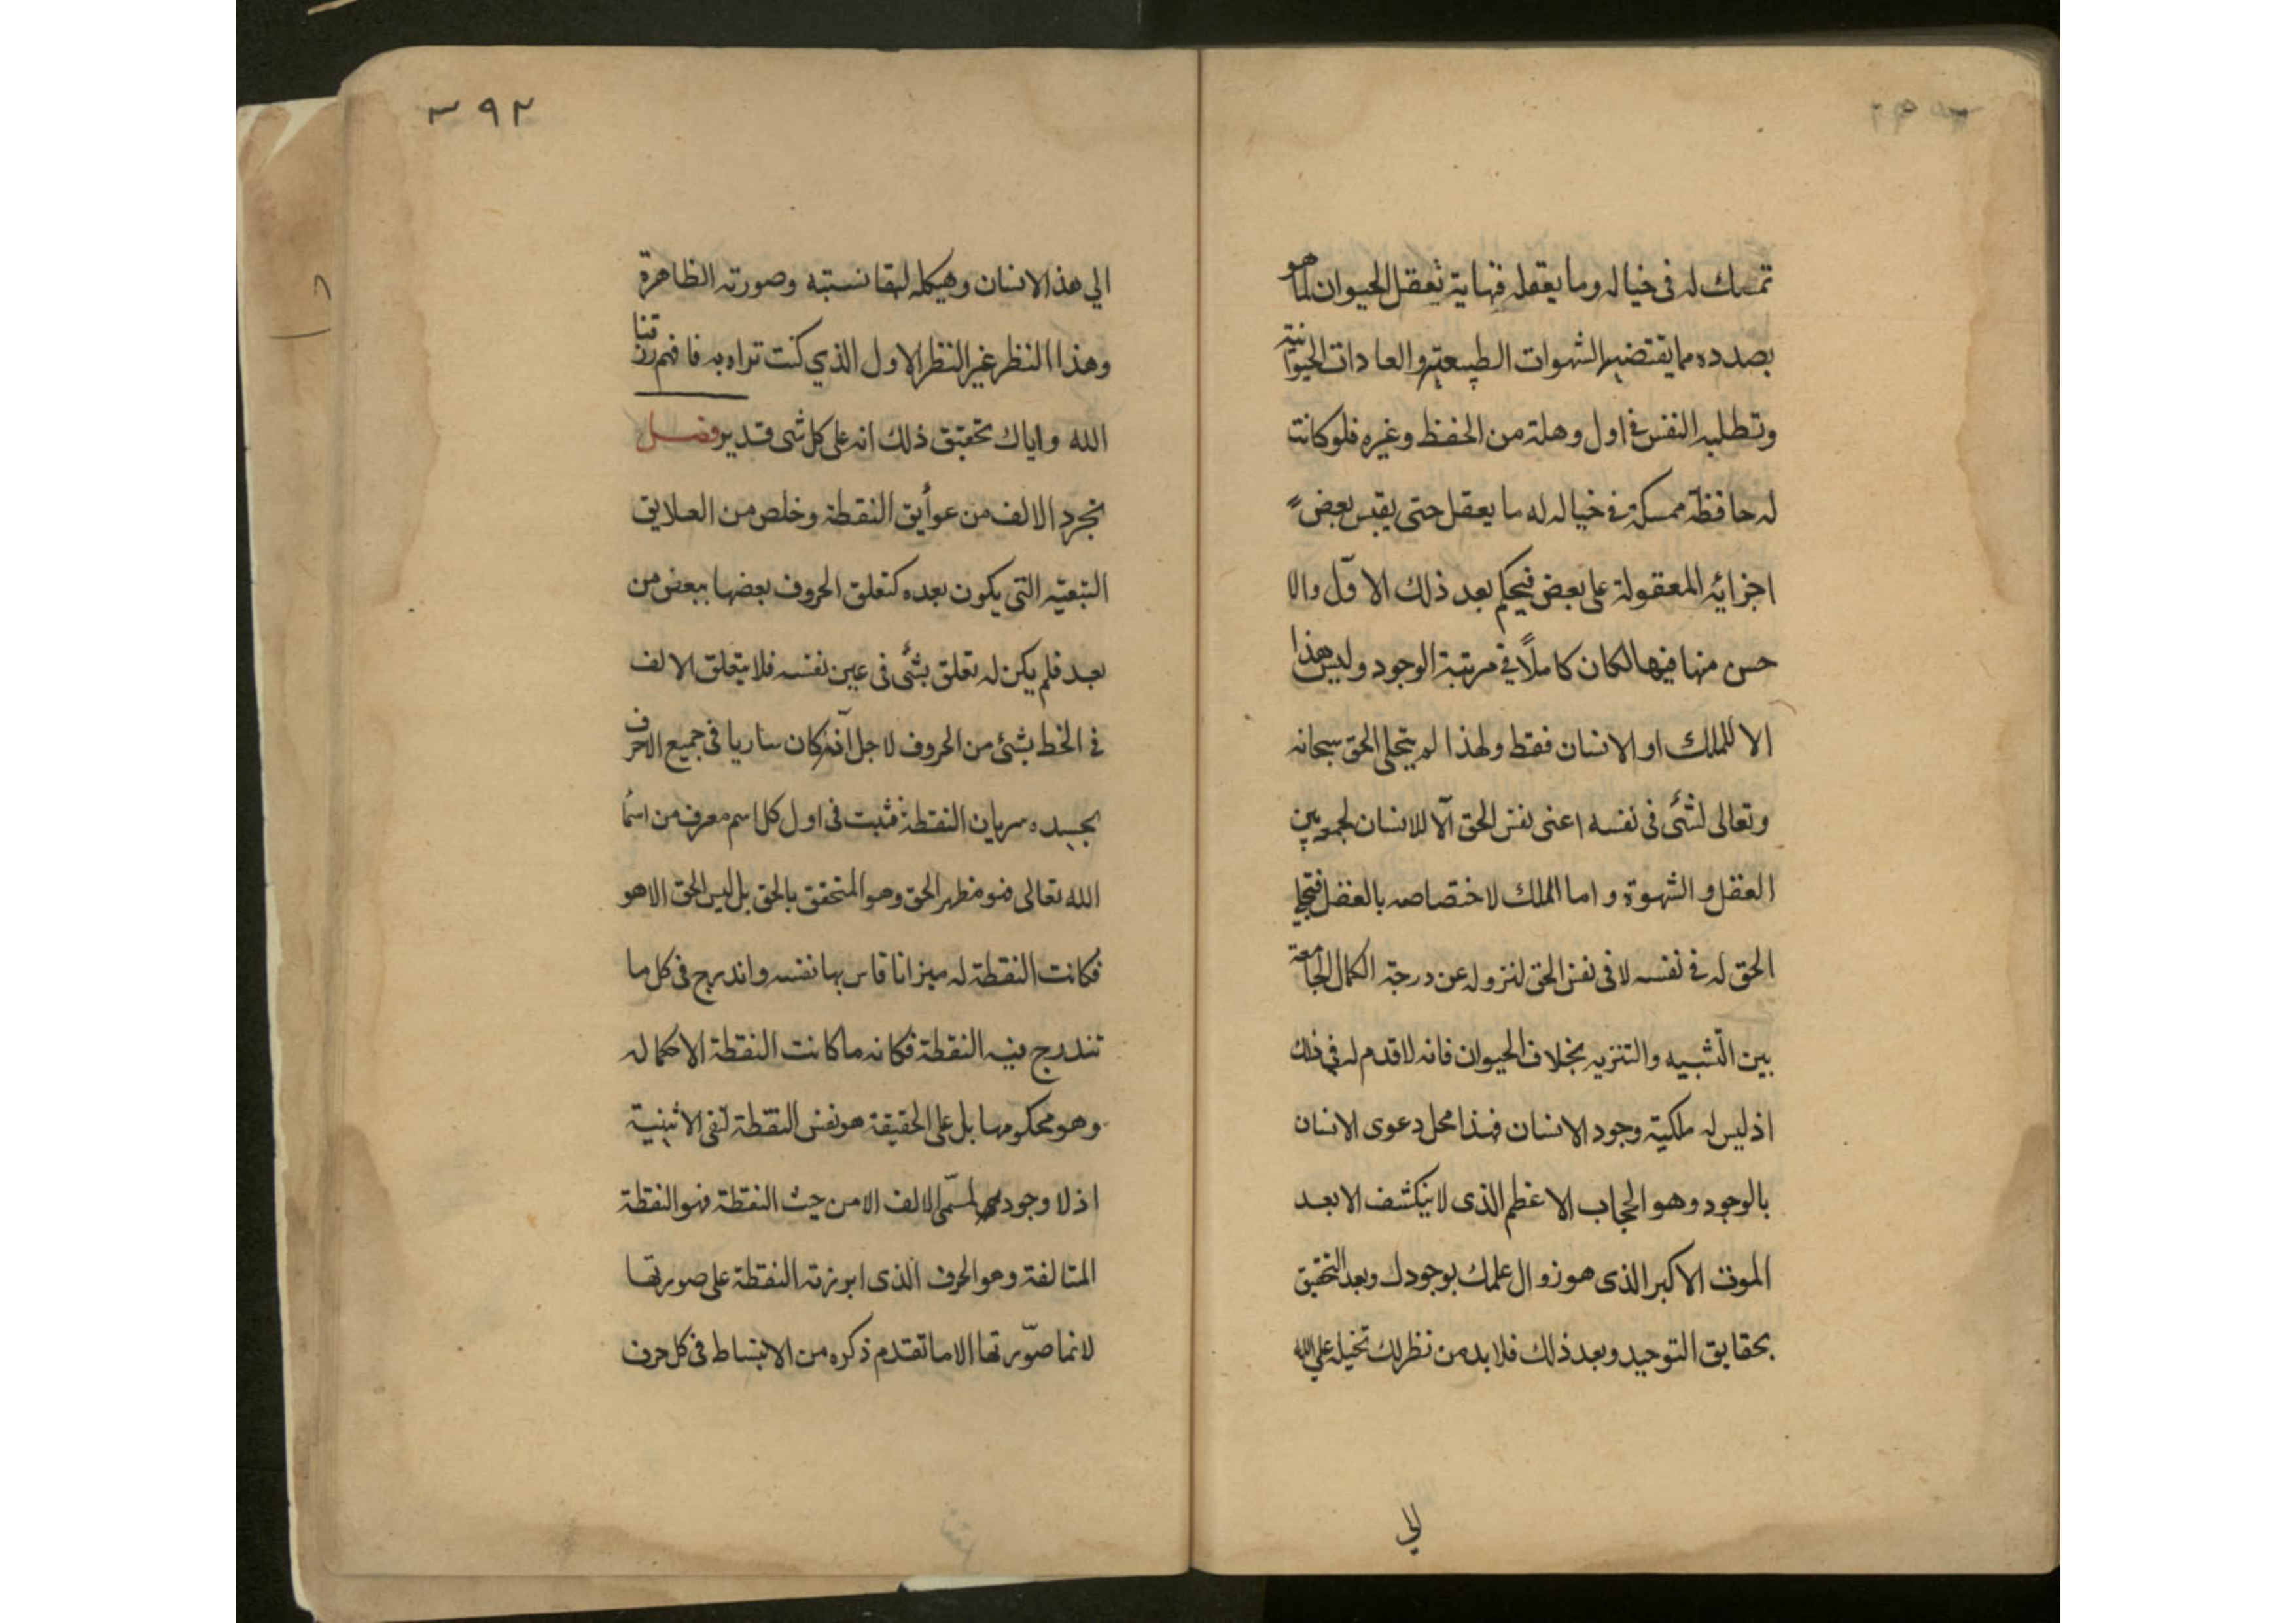 تمسك له فى خياله وما يعقله فنهاية تعقل الحيوان لما هو
بصدده مما يقتضيه الشهوات الطبيعية والعادات الحيوانية
وتطلبه النفس فى اول وهلة من الحفظ وغيره فلو كانت
له حافظة ممسكة فى خياله له ما يعقل حتى يقيس بعض
اجزائه المعقولة على بعض فيحكم بعد ذلك الاول والا
حسن منها فيها لكان كاملاً في مرتبة الوجود وليس هذا
الا للملك او الانسان فقط ولهذا لم يتجلى الحق سبحانه
وتعالى لشئ فى نفسه اعنى نفس الحق الّا للانسان لجمعه بين
العقل و الشهوة و اما الملك لاختصاصه بالعقل فتجلي
الحق له فى نفسه لا فى نفس الحق لنزوله عن درجة الكمال الجامعة
بين التشبيه والتنزيه بخلاف الحيوان فانه لا قدم له في ذلك
اذ ليس له ملكية وجود الانسان فهذا محل دعوى الانسان
بالوجود وهو الحجاب الاعظم الذى لا ينكشف الا بعد
الموت الاكبر الذى هو زوال علمك بوجودك وبعد التحقيق
بحقايق التوحيد وبعد ذلك فلا بد من نظرك تخيله علي الله
الي
٣٩٢
الي هذ الانسان وهيكله لبقا نسبته وصورته الظاهرة
وهذا النظر غير النظر الاول الذي كنت تراه به فافهم رزقنا
الله واياك تحقيق ذلك انه على كل شى قدير فصل
تجرد الالف من عوأيق النقطة وخلص من العلايق
التبعيّه التى يكون بعده كتعلق الحروف بعضها ببعض من
بعد فلم يكن له تعلق بشئ فى عين نفسه فلا يتعلق الالف
فى الخط بشئ من الحروف لاجل انّه كان ساريا فى جميع الاحرف
بجسده سريان النقطة فثبت فى اول كل اسم معرف من اسمأ
الله تعالى فهو مظهر الحق وهو المتحقق بالحق بل ليس الحق الا هو
فكانت النقطة له ميزانا قاس بها نفسه واندرج فى كل ما
تندرج فيه النقطة فكانه ما كانت النقطة الا كماله
وهو محكومها بل على الحقيقة هو نفس النقطة لنفى الاثنينية
اذ لا وجود لمسمّى الالف الا من حيث النقطة فهو النقطة
المتالفة وهو الحرف الذى ابرزته النقطة على صورتها
لانما صوّرتها الا ما تقدم ذكره من الانبساط فى كل حرف